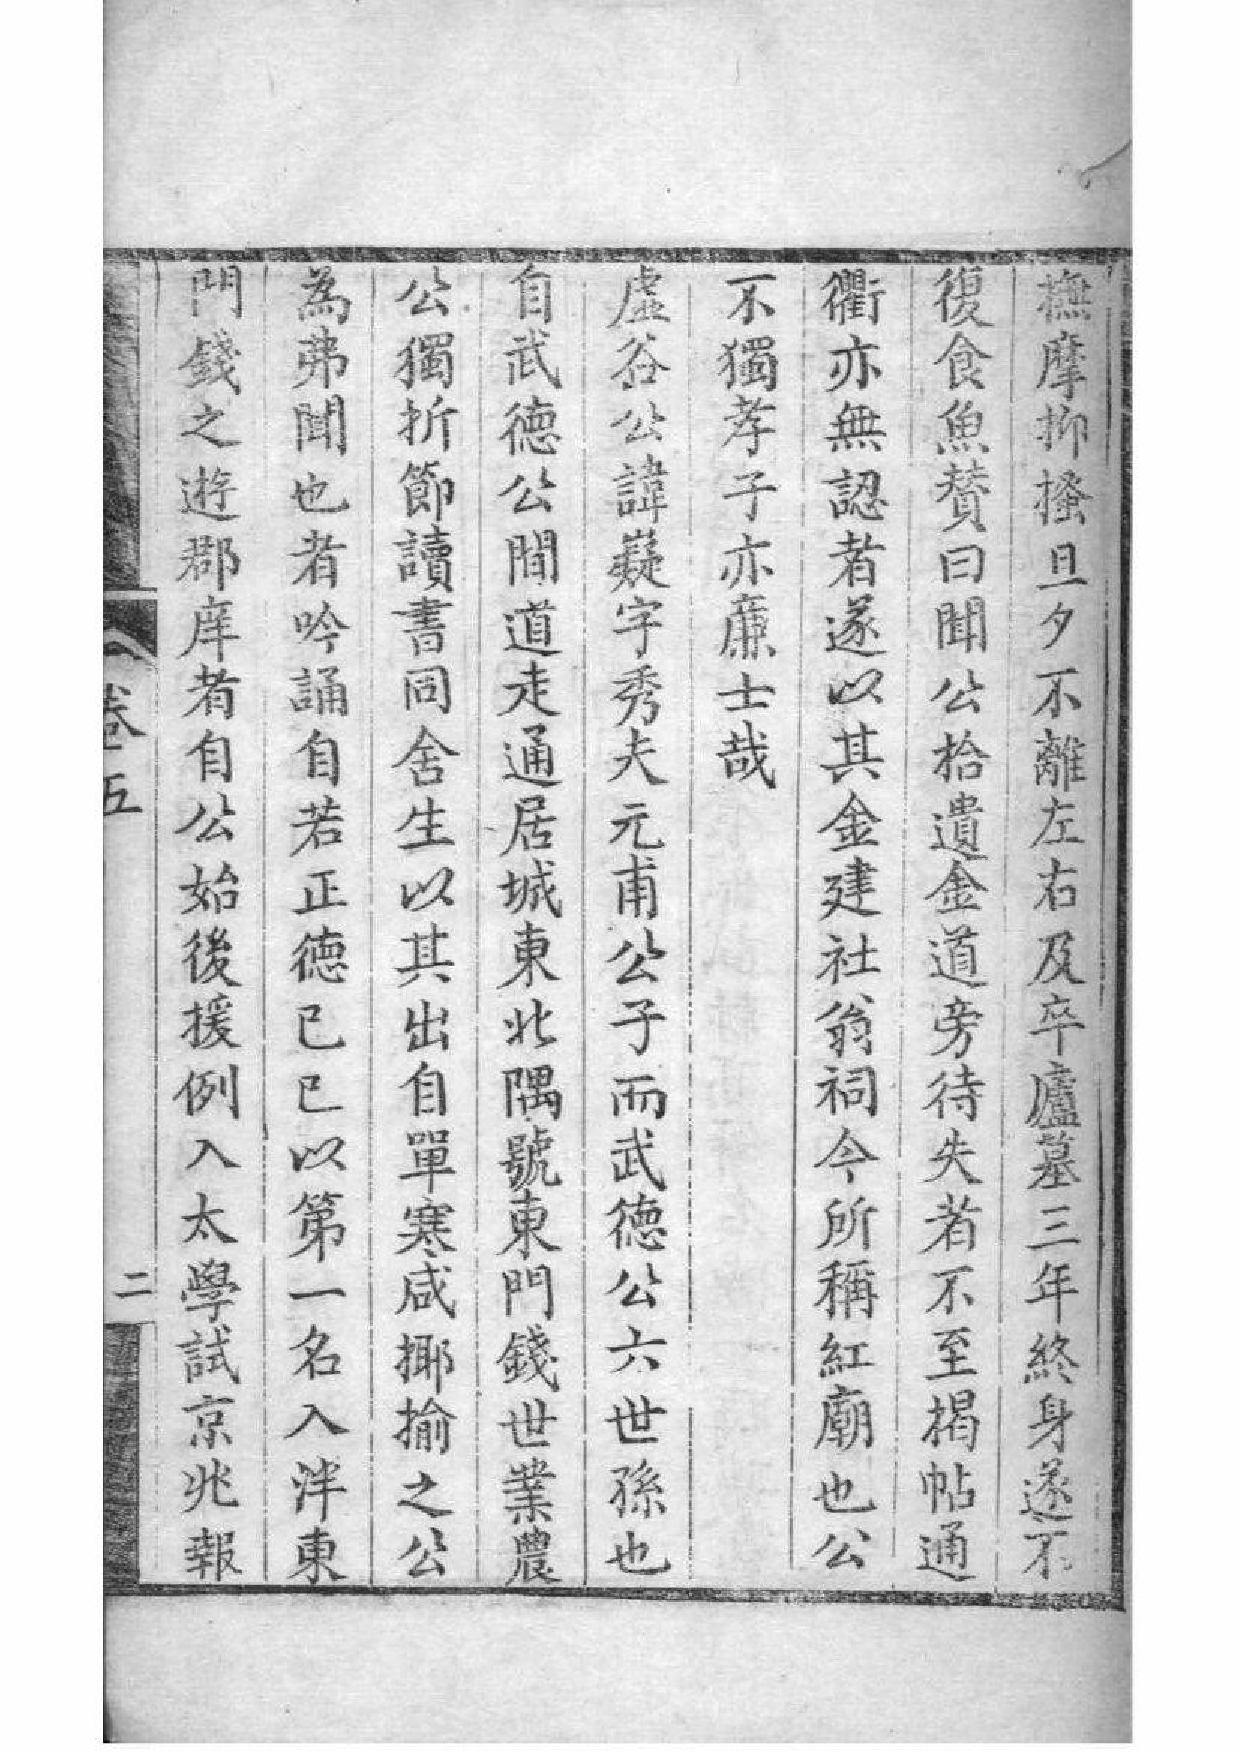 撫摩抑搔旦夕不離左右及卒廬墓三年終身遂不
復食魚贊曰聞公拾遺金道旁待失者不至揭帖通
衢亦無認者遂以其金建社翁祠今所稱紅廟也公
不獨孝子亦廉士哉
虛谷公諱嶷字秀夫元甫公子而武德公六世孫也
自武德公間道走通居城東北隅號東門錢世業農
公獨折節讀書同舍生以其出自單寒咸揶揄之公
為弗聞也者吟誦自若正德已巳以第一名入泮東
門錢之遊郡庠者自公始後援例入太學試京兆報
卷五
二